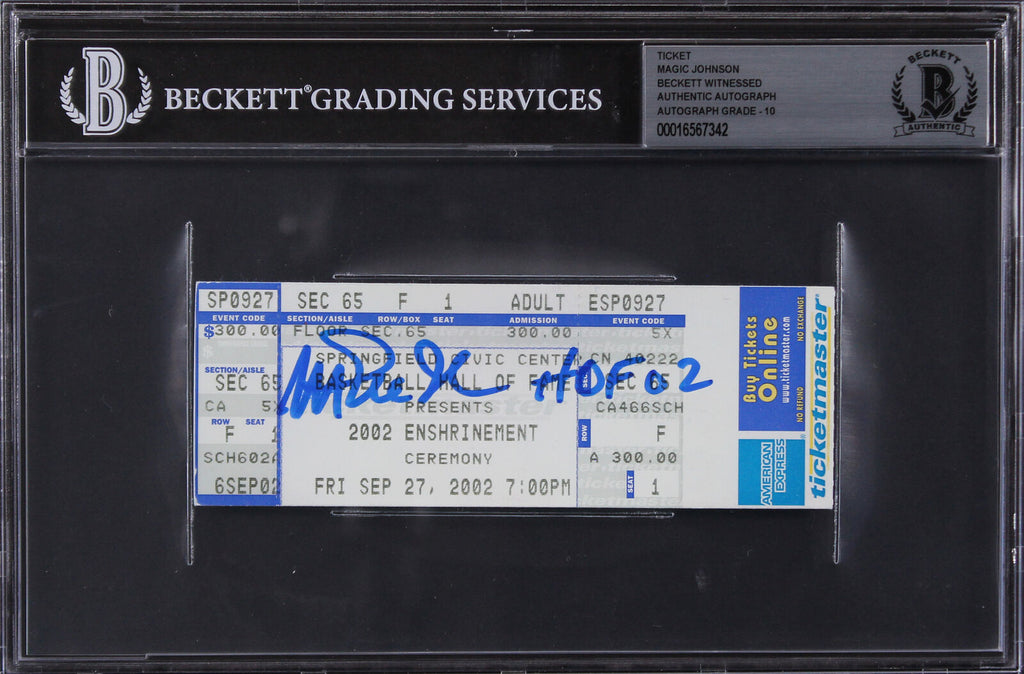 B BECKETT® GRADING SERVICES
TICKET
MAGIC JOHNSON
BECKETT WITNESSED
AUTHENTIC AUTOGRAPH
AUTOGRAPH GRADE - 10
00016567342
BECKETT
B
AUTHENTIC
SP0927 SEC 65 F 1 ADULT ESP0927
EVENT CODE SECTION/AISLE ROW/BOX SEAT ADMISSION EVENT CODE
$300.00 FLOOR SEC.65 300.00 5X
SPRINGFIELD CIVIC CENTER CN 40222
SECTION/AISLE
SEC 65 BASKETBALL HALL OF FAME SEC 65
HOF 02
CA 5X PRESENTS CA466SCH
ROW SEAT
F 1 2002 ENSHRINEMENT ROW F
SCH602A CEREMONY A 300.00
6SEP02 FRI SEP 27, 2002 7:00PM SEAT 1
Buy Tickets
Online
www.ticketmaster.com
NO REFUND NO EXCHANGE
AMERICAN
EXPRESS
®
ticketmaster